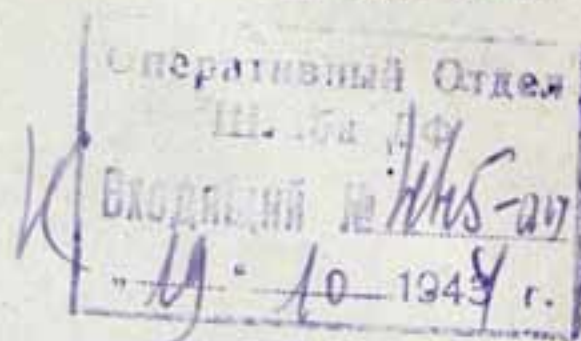 Оперативный Отдел
Штаба ЛФ
Входящий №
10 1944 г.